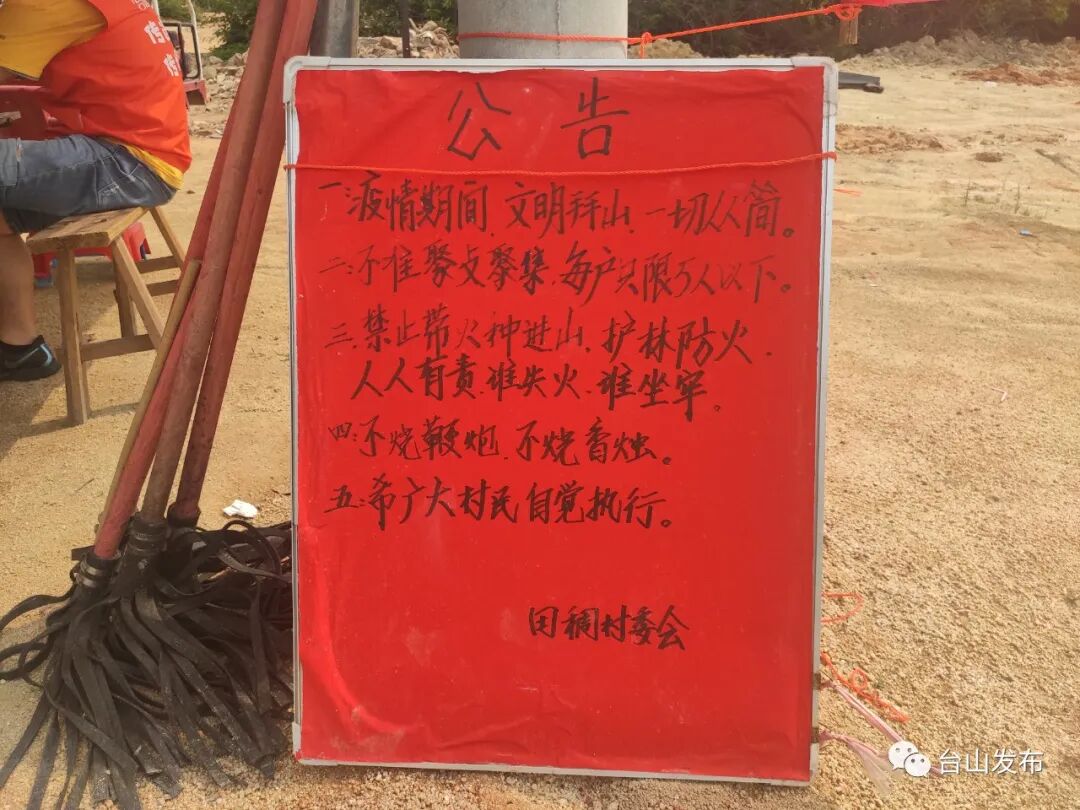 公告
一:疫情期间,文明拜山,一切从简。
二:不准聚点聚集,每户只限5人以下。
三:禁止带火种进山,护林防火,
人人有责,谁失火,谁坐牢。
四:不烧鞭炮,不烧香烛。
五:希广大村民自觉执行。
田稠村委会
台山发布